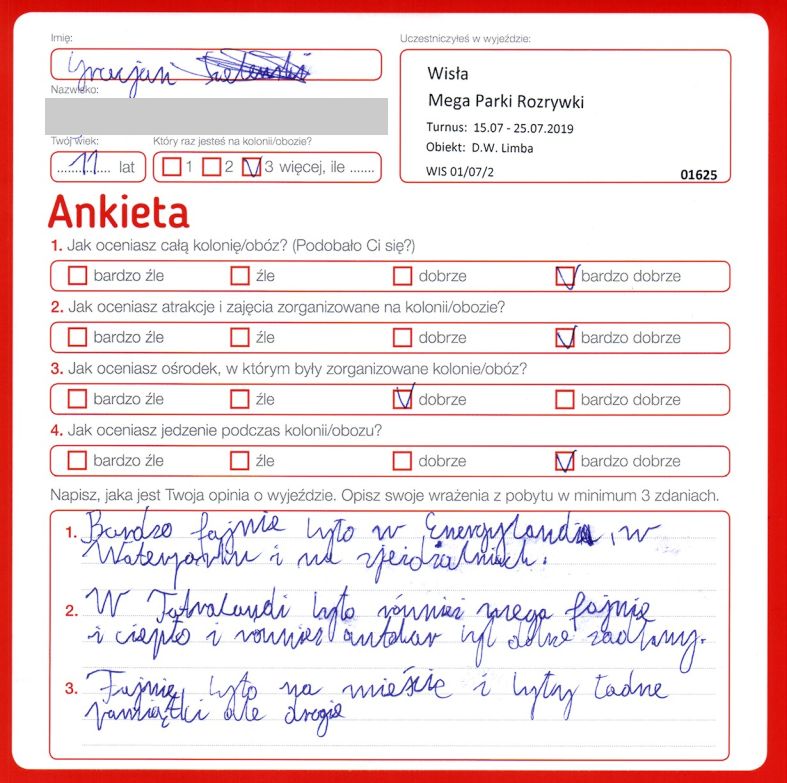 Imię:
Gracjan
Nazwisko:
Twój wiek:
11 lat
Który raz jesteś na kolonii/obozie?
1 2 3 więcej, ile .......
Uczestniczyłeś w wyjeździe:
Wisła
Mega Parki Rozrywki
Turnus: 15.07 - 25.07.2019
Obiekt: D.W. Limba
WIS 01/07/2 01625
Ankieta
1. Jak oceniasz całą kolonię/obóz? (Podobało Ci się?)
bardzo źle źle dobrze bardzo dobrze
2. Jak oceniasz atrakcje i zajęcia zorganizowane na kolonii/obozie?
bardzo źle źle dobrze bardzo dobrze
3. Jak oceniasz ośrodek, w którym były zorganizowane kolonie/obóz?
bardzo źle źle dobrze bardzo dobrze
4. Jak oceniasz jedzenie podczas kolonii/obozu?
bardzo źle źle dobrze bardzo dobrze
Napisz, jaka jest Twoja opinia o wyjeździe. Opisz swoje wrażenia z pobytu w minimum 3 zdaniach.
1. Bardzo fajnie było w Energylandi, w
Waterparku i na zjeżdżalniach.
2. W Tatralandi było również mega fajnie
i ciepło i również autokar był zadbany.
3. Fajnie było na mieście i były ładne
pamiątki ale drogie